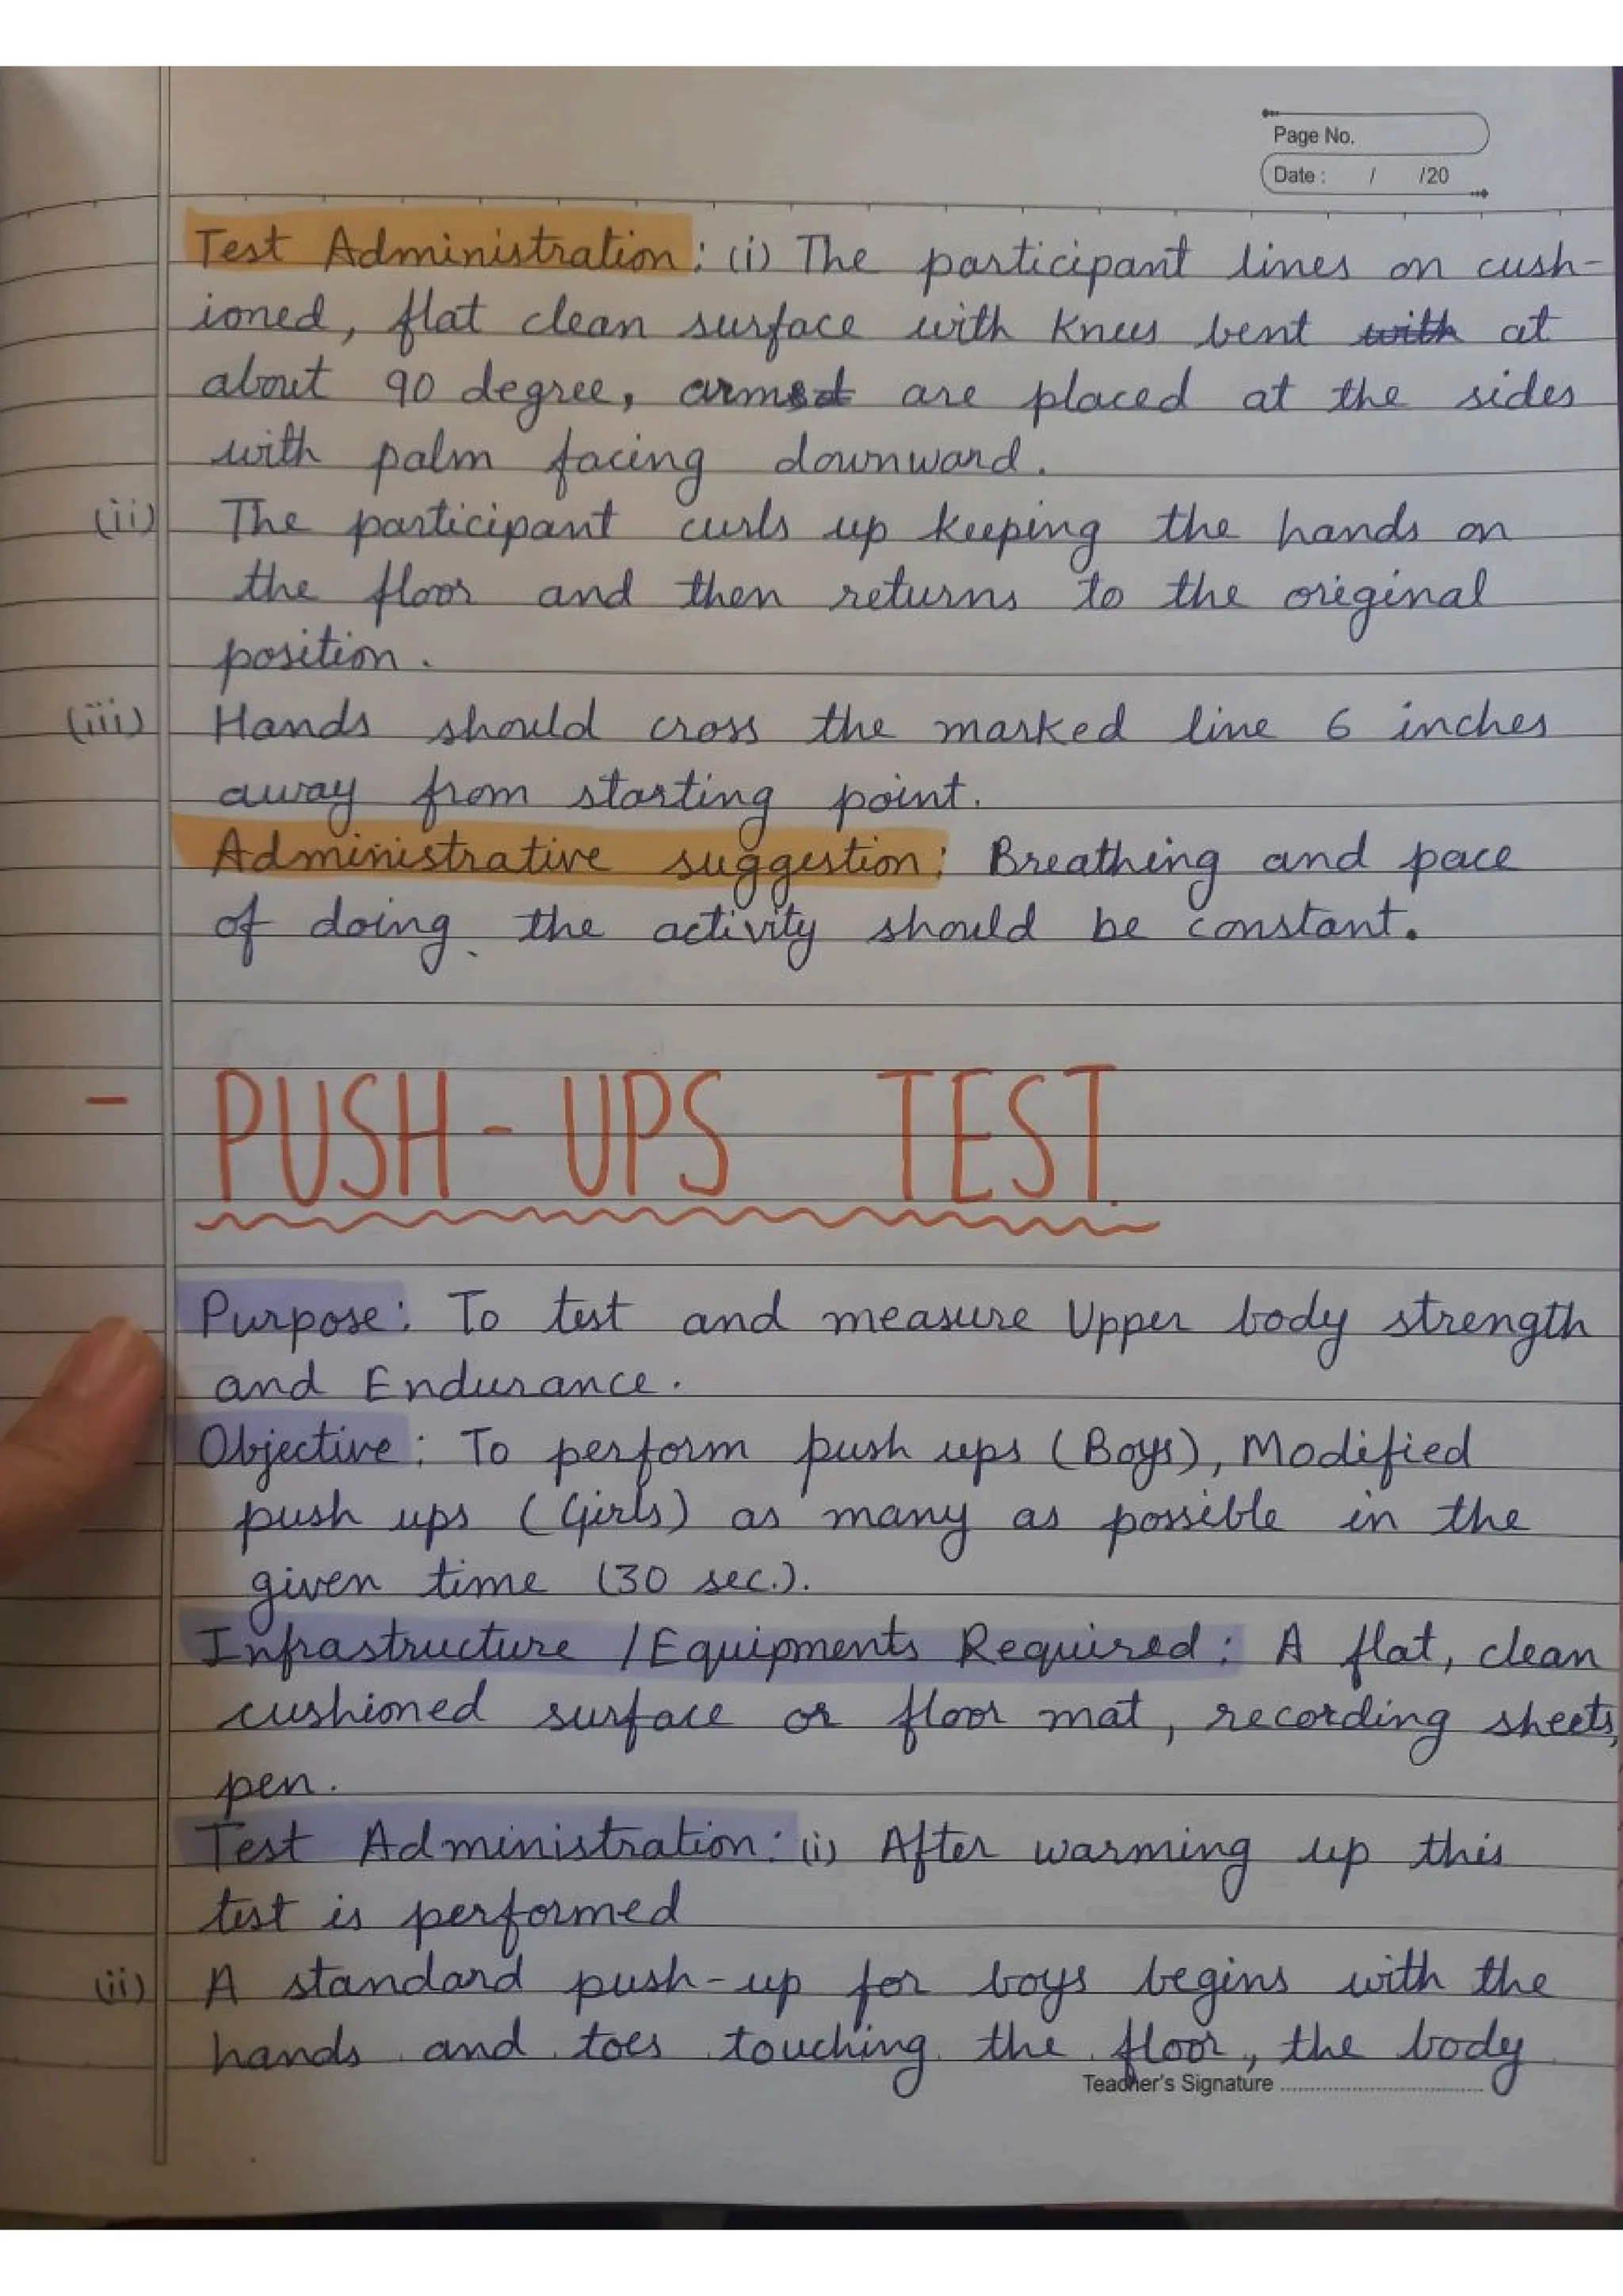 Page No.
Date : / /20
Test Administration : (i) The participant lines on cush-
ioned, flat clean surface with Knees bent with at
about 90 degree, arms are placed at the sides
with palm facing downward.
(ii) The participant curls up keeping the hands on
the floor and then returns to the original
position.
(iii) Hands should cross the marked line 6 inches
away from starting point.
Administrative suggestion : Breathing and pace
of doing the activity should be constant.
- PUSH-UPS TEST.
Purpose : To test and measure Upper body strength
and Endurance.
Objective : To perform push ups (Boys), Modified
push ups (Girls) as many as possible in the
given time (30 sec.).
Infrastructure / Equipments Required : A flat, clean
cushioned surface or floor mat, recording sheets,
pen.
Test Administration : (i) After warming up this
test is performed
(ii) A standard push-up for boys begins with the
hands and toes touching the floor, the body
Teacher's Signature